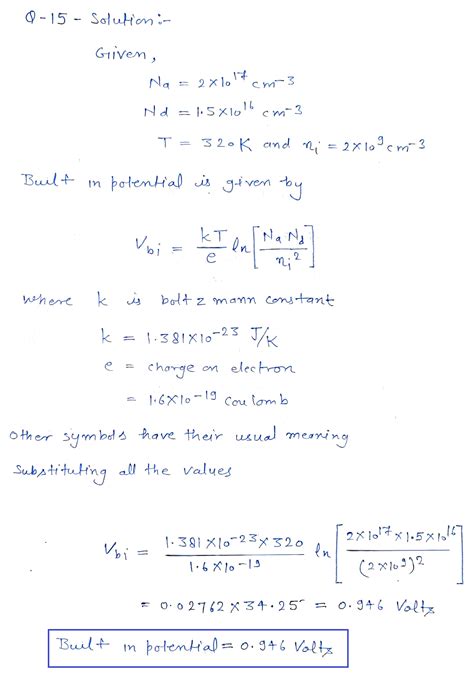 Q-15 - Solution:-
Given,
Na = 2×10¹⁷ cm-3
Nd = 1.5×10¹⁶ cm-3
T = 320K and nᵢ = 2×10⁹ cm-3
Built in potential is given by
Vbi = kT/e ln[Na Nd / nᵢ²]
where k is boltzmann constant
k = 1.381×10⁻²³ J/K
e = charge on electron
= 1.6×10⁻¹⁹ Coulomb
Other symbols have their usual meaning
Substituting all the values
Vbi = 1.381×10⁻²³×320 / 1.6×10⁻¹⁹ ln[2×10¹⁷×1.5×10¹⁶ / (2×10⁹)²]
= 0.02762×34.25 = 0.946 Volts
Built in potential = 0.946 Volts